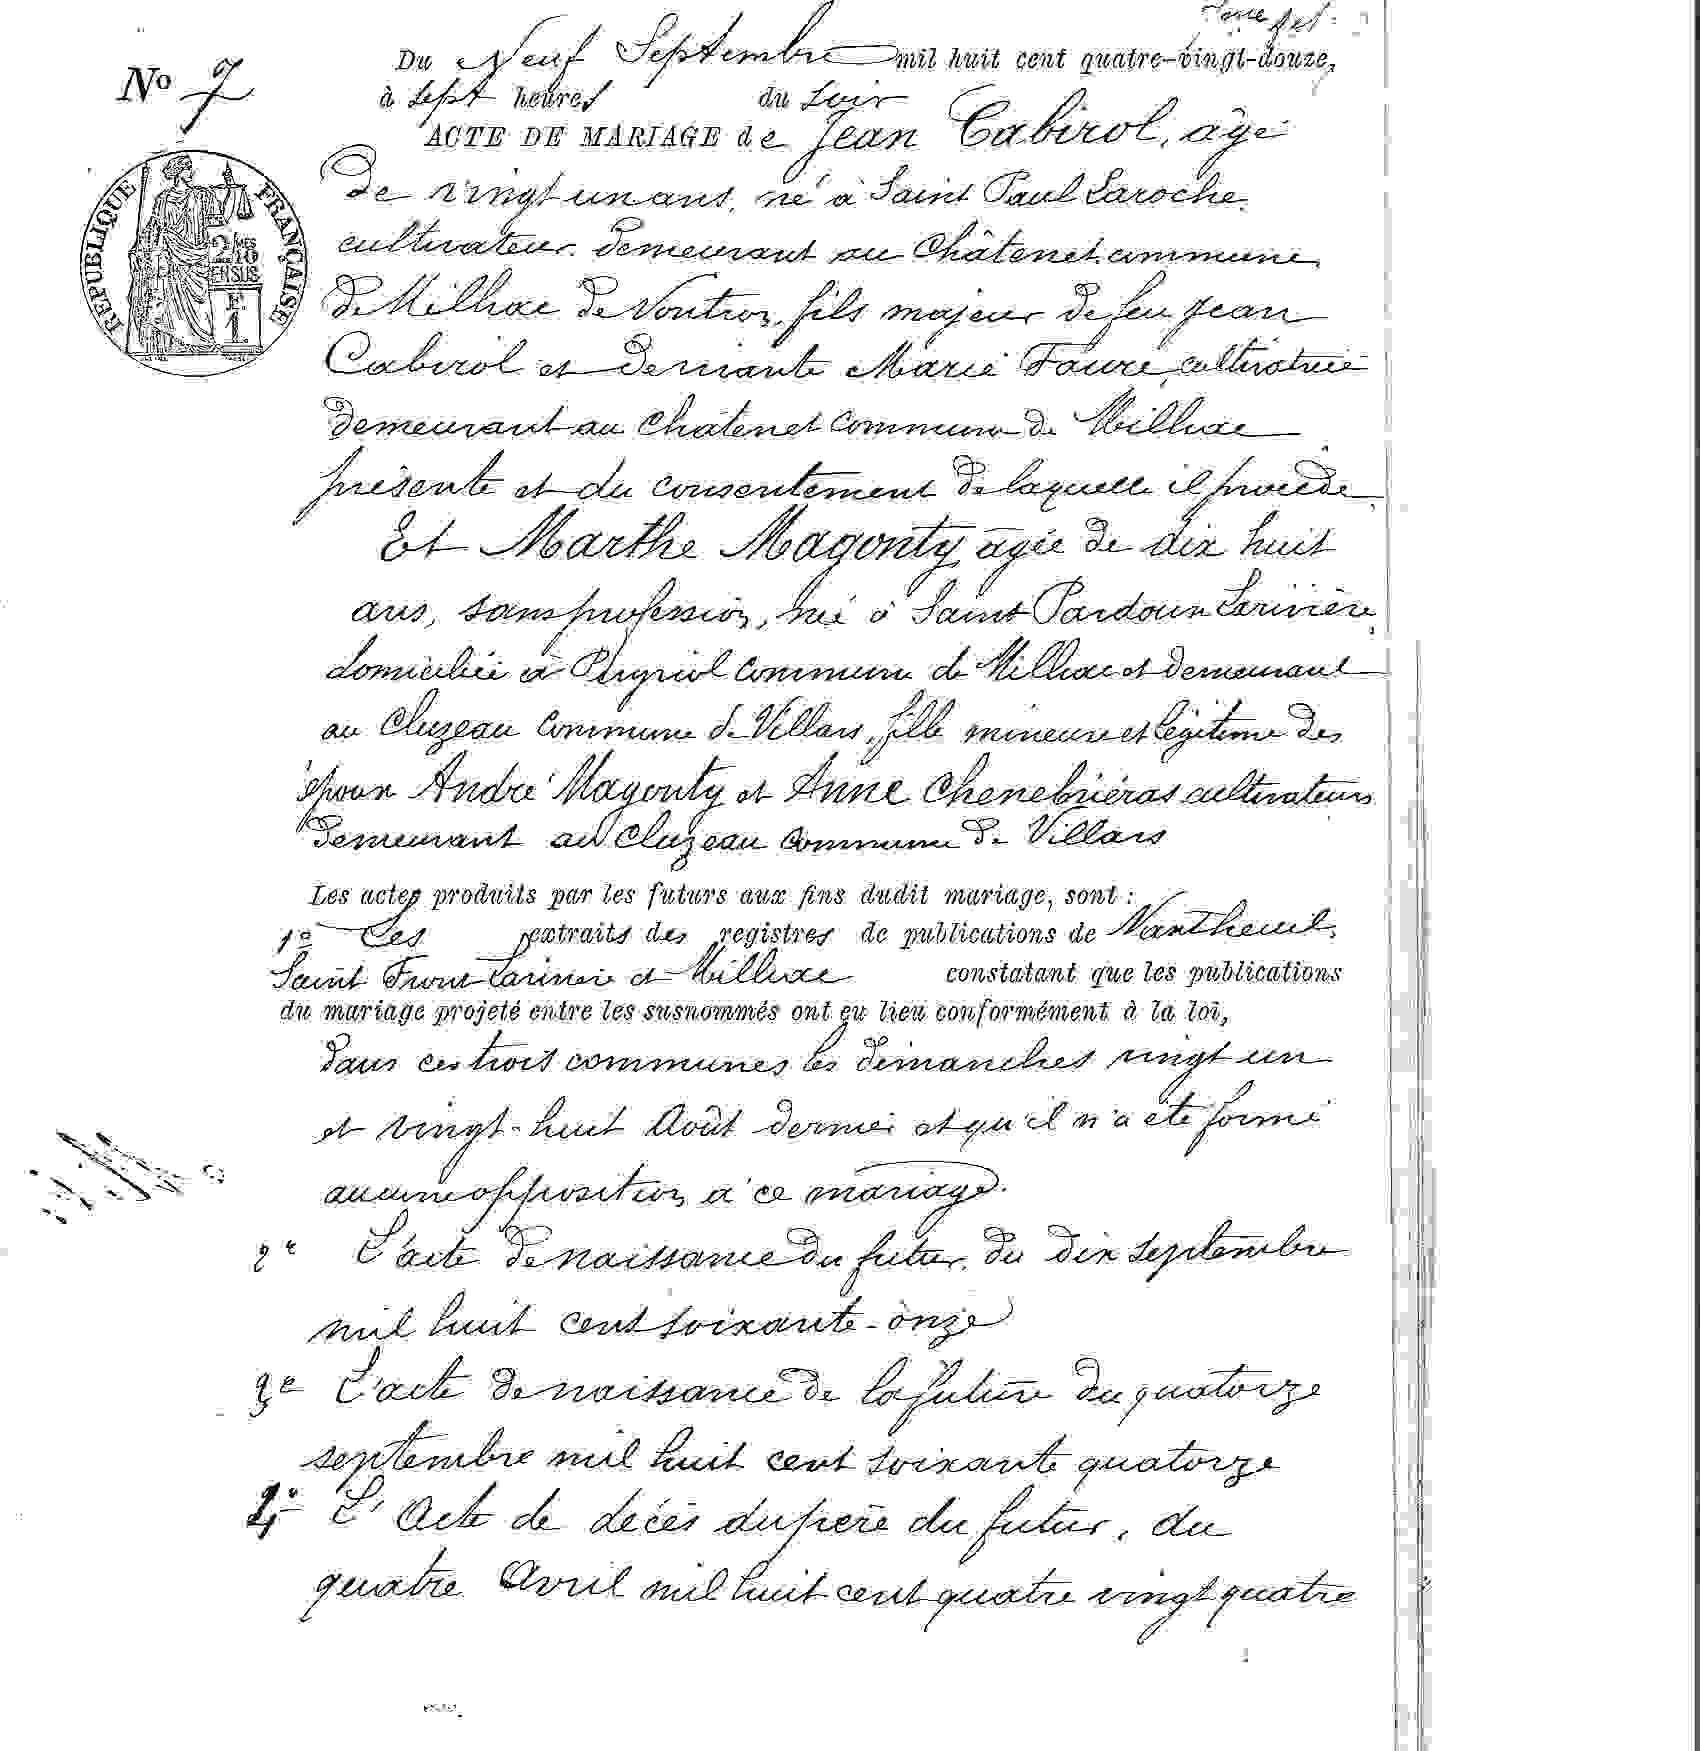 Du Neuf Septembre mil huit cent quatre-vingt-douze,
No 7
à sept heures du soir
ACTE DE MARIAGE de Jean Cabirol, âgé
de vingt un ans, né à Saint Paul Laroche,
RÉPUBLIQUE FRANÇAISE
cultivateur, demeurant au Châtenet commune
2/10 EN SUS
1
de Milhac de Nontron, fils majeur de feu Jean
Cabirol et de vivante Marie Faure, cultivatrice
demeurant au Châtenet commune de Milhac
présente et du consentement de laquelle il procède
Et Marthe Magonty âgée de dix huit
ans, sans profession, née à Saint Pardoux Larivière
domiciliée à commune de Milhac et demeurant
au Cluzeau commune de Villars, fille mineure et légitime des
époux André Magonty et Anne Chenebriéras cultivateurs
demeurant au Cluzeau commune de Villars
Les actes produits par les futurs aux fins dudit mariage, sont :
1º Les extraits des registres de publications de Nantheuil,
Saint Front Larivière et Milhac constatant que les publications
du mariage projeté entre les susnommés ont eu lieu conformément à la loi,
dans ces trois communes les dimanches vingt un
et vingt-huit Août dernier et qu'il n'a été formé
aucune opposition à ce mariage.
2º L'acte de naissance du futur, du dix septembre
mil huit cent soixante-onze
3º L'acte de naissance de la future du quatorze
septembre mil huit cent soixante quatorze
4º L'Acte de décès du père du futur, du
quatre Avril mil huit cent quatre vingt quatre